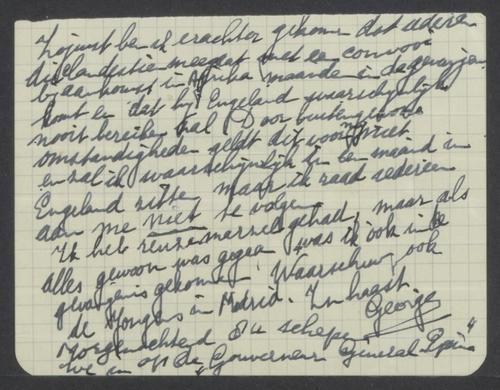 Zojuist ben ik erachter gekomen dat iedereen
die clandestien meegaat met een convooi
bij aankomst in Afrika maanden in de gevangenis
komt en dat hij Engeland waarschijnlijk
nooit bereiken zal. Door buitengewone
omstandigheden geldt dit voor mij niet
en zal ik waarschijnlijk in een maand in
Engeland zitten, maar ik raad iedereen
aan me niet te volgen.
Ik heb reuze marrel gehad, maar als
alles gewoon was gegaan, was ik ook in de
gevangenis gekomen. Waarschuw ook
de jongens in Madrid. In haast
George
Morgenochtend
we in op de "Gouverneur General